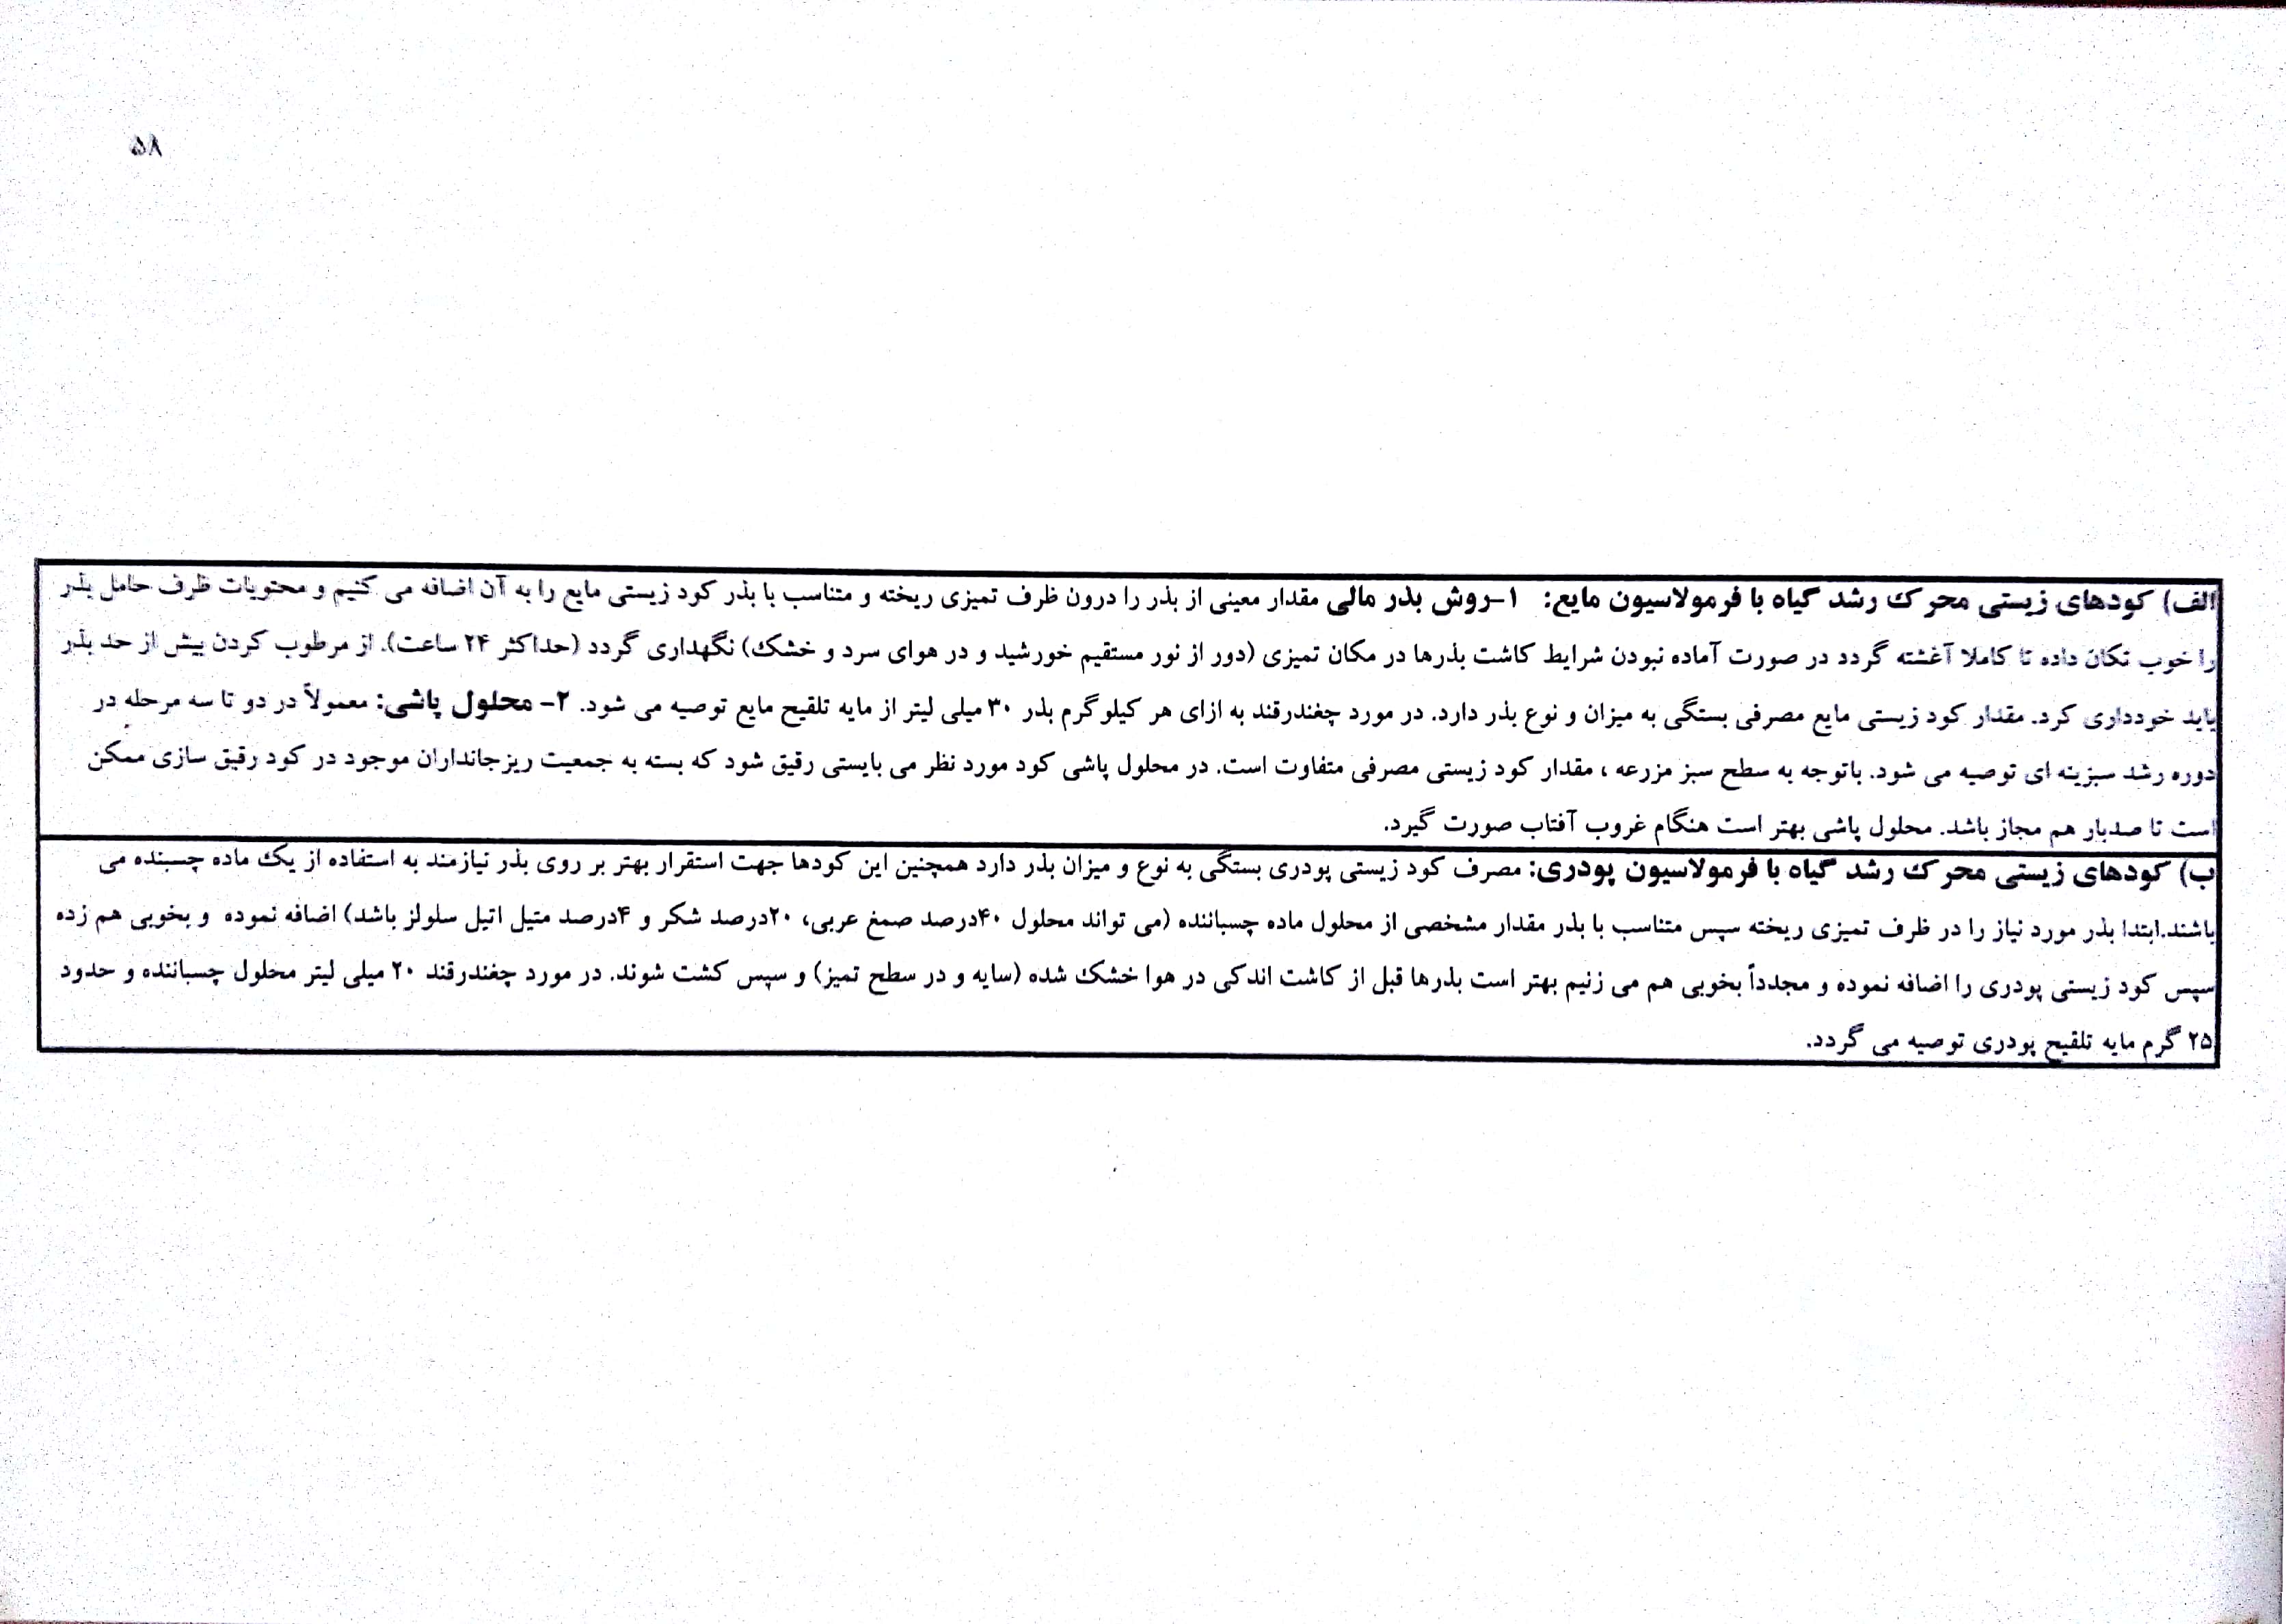 ۵۸
الف) کودهای زیستی محرک رشد گیاه با فرمولاسیون مایع: ۱-روش بذر مالی مقدار معینی از بذر را درون ظرف تمیزی ریخته و متناسب با بذر کود زیستی مایع را به آن اضافه می کنیم و محتویات ظرف حامل بذر
را خوب تکان داده تا کاملا آغشته گردد در صورت آماده نبودن شرایط کاشت بذرها در مکان تمیزی (دور از نور مستقیم خورشید و در هوای سرد و خشک) نگهداری گردد (حداکثر ۲۴ ساعت). از مرطوب کردن بیش از حد بذر
باید خودداری کرد. مقدار کود زیستی مایع مصرفی بستگی به میزان و نوع بذر دارد. در مورد چغندرقند به ازای هر کیلوگرم بذر ۳۰ میلی لیتر از مایه تلقیح مایع توصیه می شود. ۲- محلول پاشی: معمولاً در دو تا سه مرحله در
دوره رشد سبزینه ای توصیه می شود. باتوجه به سطح سبز مزرعه ، مقدار کود زیستی مصرفی متفاوت است. در محلول پاشی کود مورد نظر می بایستی رقیق شود که بسته به جمعیت ریزجانداران موجود در کود رقیق سازی ممکن
است تا صدبار هم مجاز باشد. محلول پاشی بهتر است هنگام غروب آفتاب صورت گیرد.
ب) کودهای زیستی محرک رشد گیاه با فرمولاسیون پودری: مصرف کود زیستی پودری بستگی به نوع و میزان بذر دارد همچنین این کودها جهت استقرار بهتر بر روی بذر نیازمند به استفاده از یک ماده چسبنده می
باشند.ابتدا بذر مورد نیاز را در ظرف تمیزی ریخته سپس متناسب با بذر مقدار مشخصی از محلول ماده چسباننده (می تواند محلول ۴۰درصد صمغ عربی، ۲۰درصد شکر و ۴درصد متیل اتیل سلولز باشد) اضافه نموده و بخوبی هم زده
سپس کود زیستی پودری را اضافه نموده و مجدداً بخوبی هم می زنیم بهتر است بذرها قبل از کاشت اندکی در هوا خشک شده (سایه و در سطح تمیز) و سپس کشت شوند. در مورد چغندرقند ۲۰ میلی لیتر محلول چسباننده و حدود
۲۵ گرم مایه تلقیح پودری توصیه می گردد.